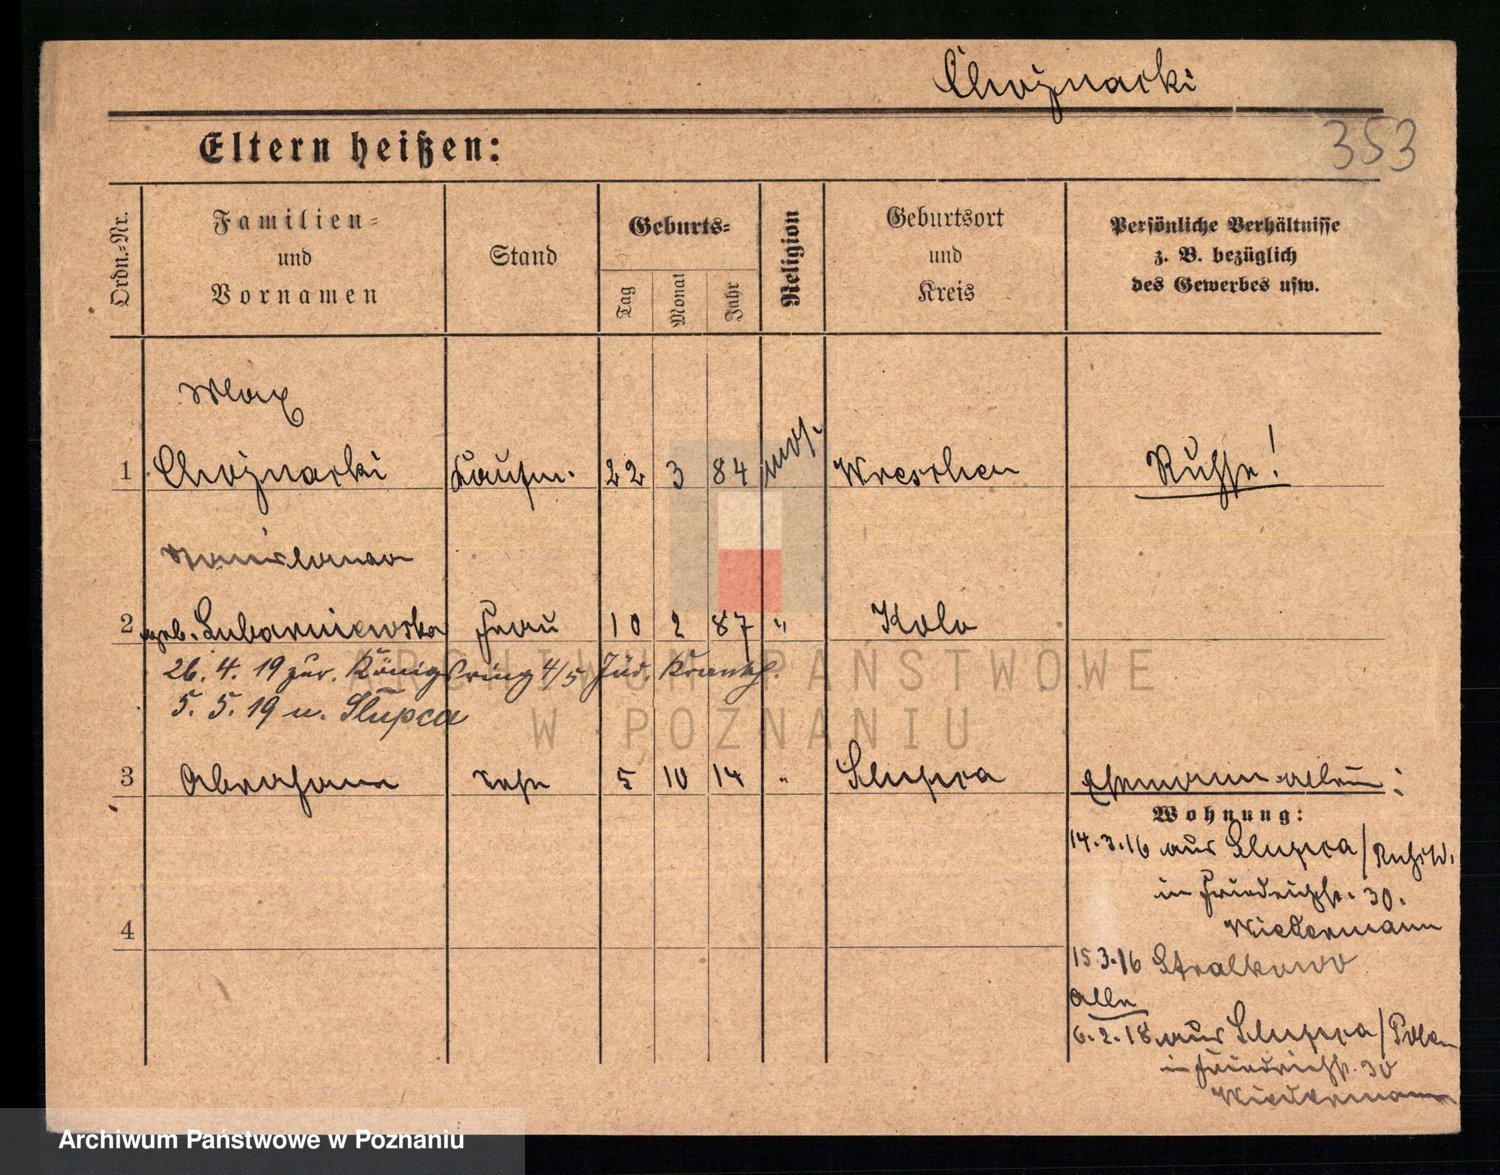 Chojnacki
353
Eltern heißen:
Ordn.-Nr.
Familien-
und
Vornamen
Stand
Geburts-
Tag
Monat
Jahr
Religion
Geburtsort
und
Kreis
Persönliche Verhältnisse
z. B. bezüglich
des Gewerbes usw.
Max
1 Chojnacki Kaufm. 22 3 84 mos. Wreschen Russe!
2 geb. Lubarniewska Frau 10 2 87 " Kolo
26. 4. 19 zur. Königsring 4/5 Jüd. Krankh.
5. 5. 19 n. Slupca
3 Abraham Sohn 5 10 14 " Slupca Ehemann allein:
Wohnung:
14.3.16 aus Slupca / Rußld.
in Friedrichstr. 30.
Wiedermann
4
15.3.16 Stralkowo
alle
6.2.18 aus Slupca / Polen
in Friedrichstr. 30
Wiedermann
ARCHIWUM PAŃSTWOWE
W POZNANIU
Archiwum Państwowe w Poznaniu